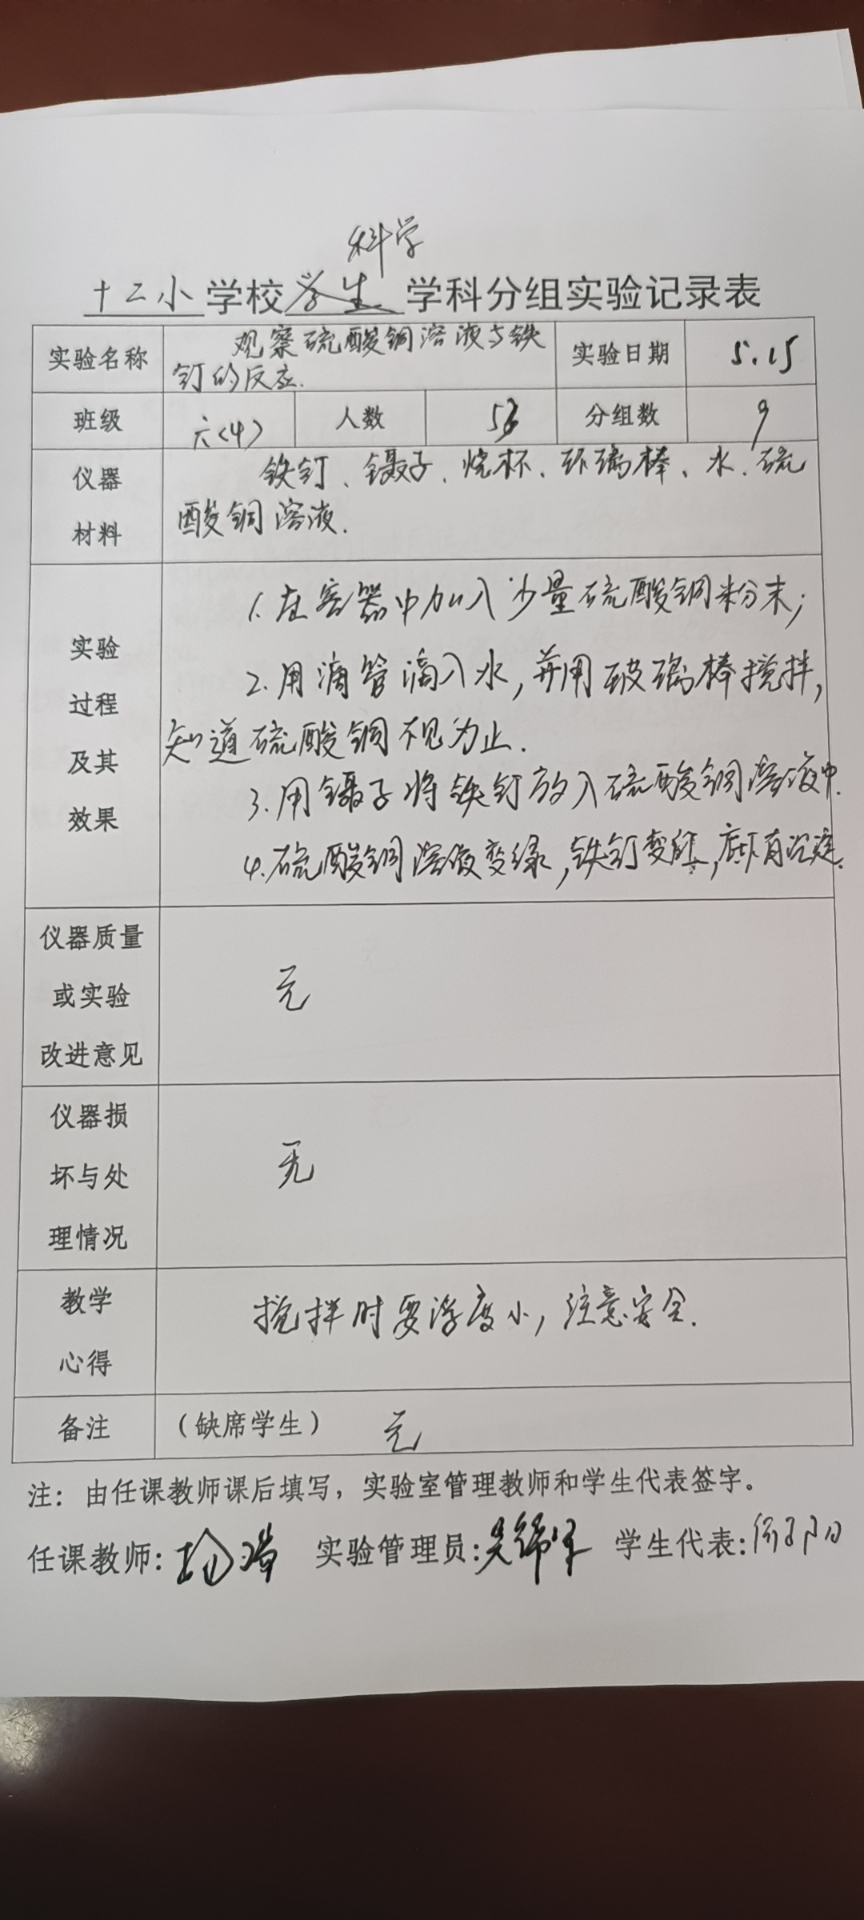 科学
十二小学校学生学科分组实验记录表
实验名称 观察硫酸铜溶液与铁钉的反应. 实验日期 5.15
班级 六(4) 人数 53 分组数 9
仪器材料 铁钉、镊子、烧杯、环璃棒、水、硫
酸铜溶液.
实验过程及其效果
1.在容器中加入少量硫酸铜粉末;
2.用滴管滴入水,并用玻璃棒搅拌,
知道硫酸铜不见为止.
3.用镊子将铁钉放入硫酸铜溶液中.
4.硫酸铜溶液变绿,铁钉变红,底下有沉淀.
仪器质量或实验改进意见 无
仪器损坏与处理情况 无
教学心得 搅拌时要浮度小,注意安全.
备注 (缺席学生) 无
注:由任课教师课后填写,实验室管理教师和学生代表签字。
任课教师: 实验管理员: 学生代表: